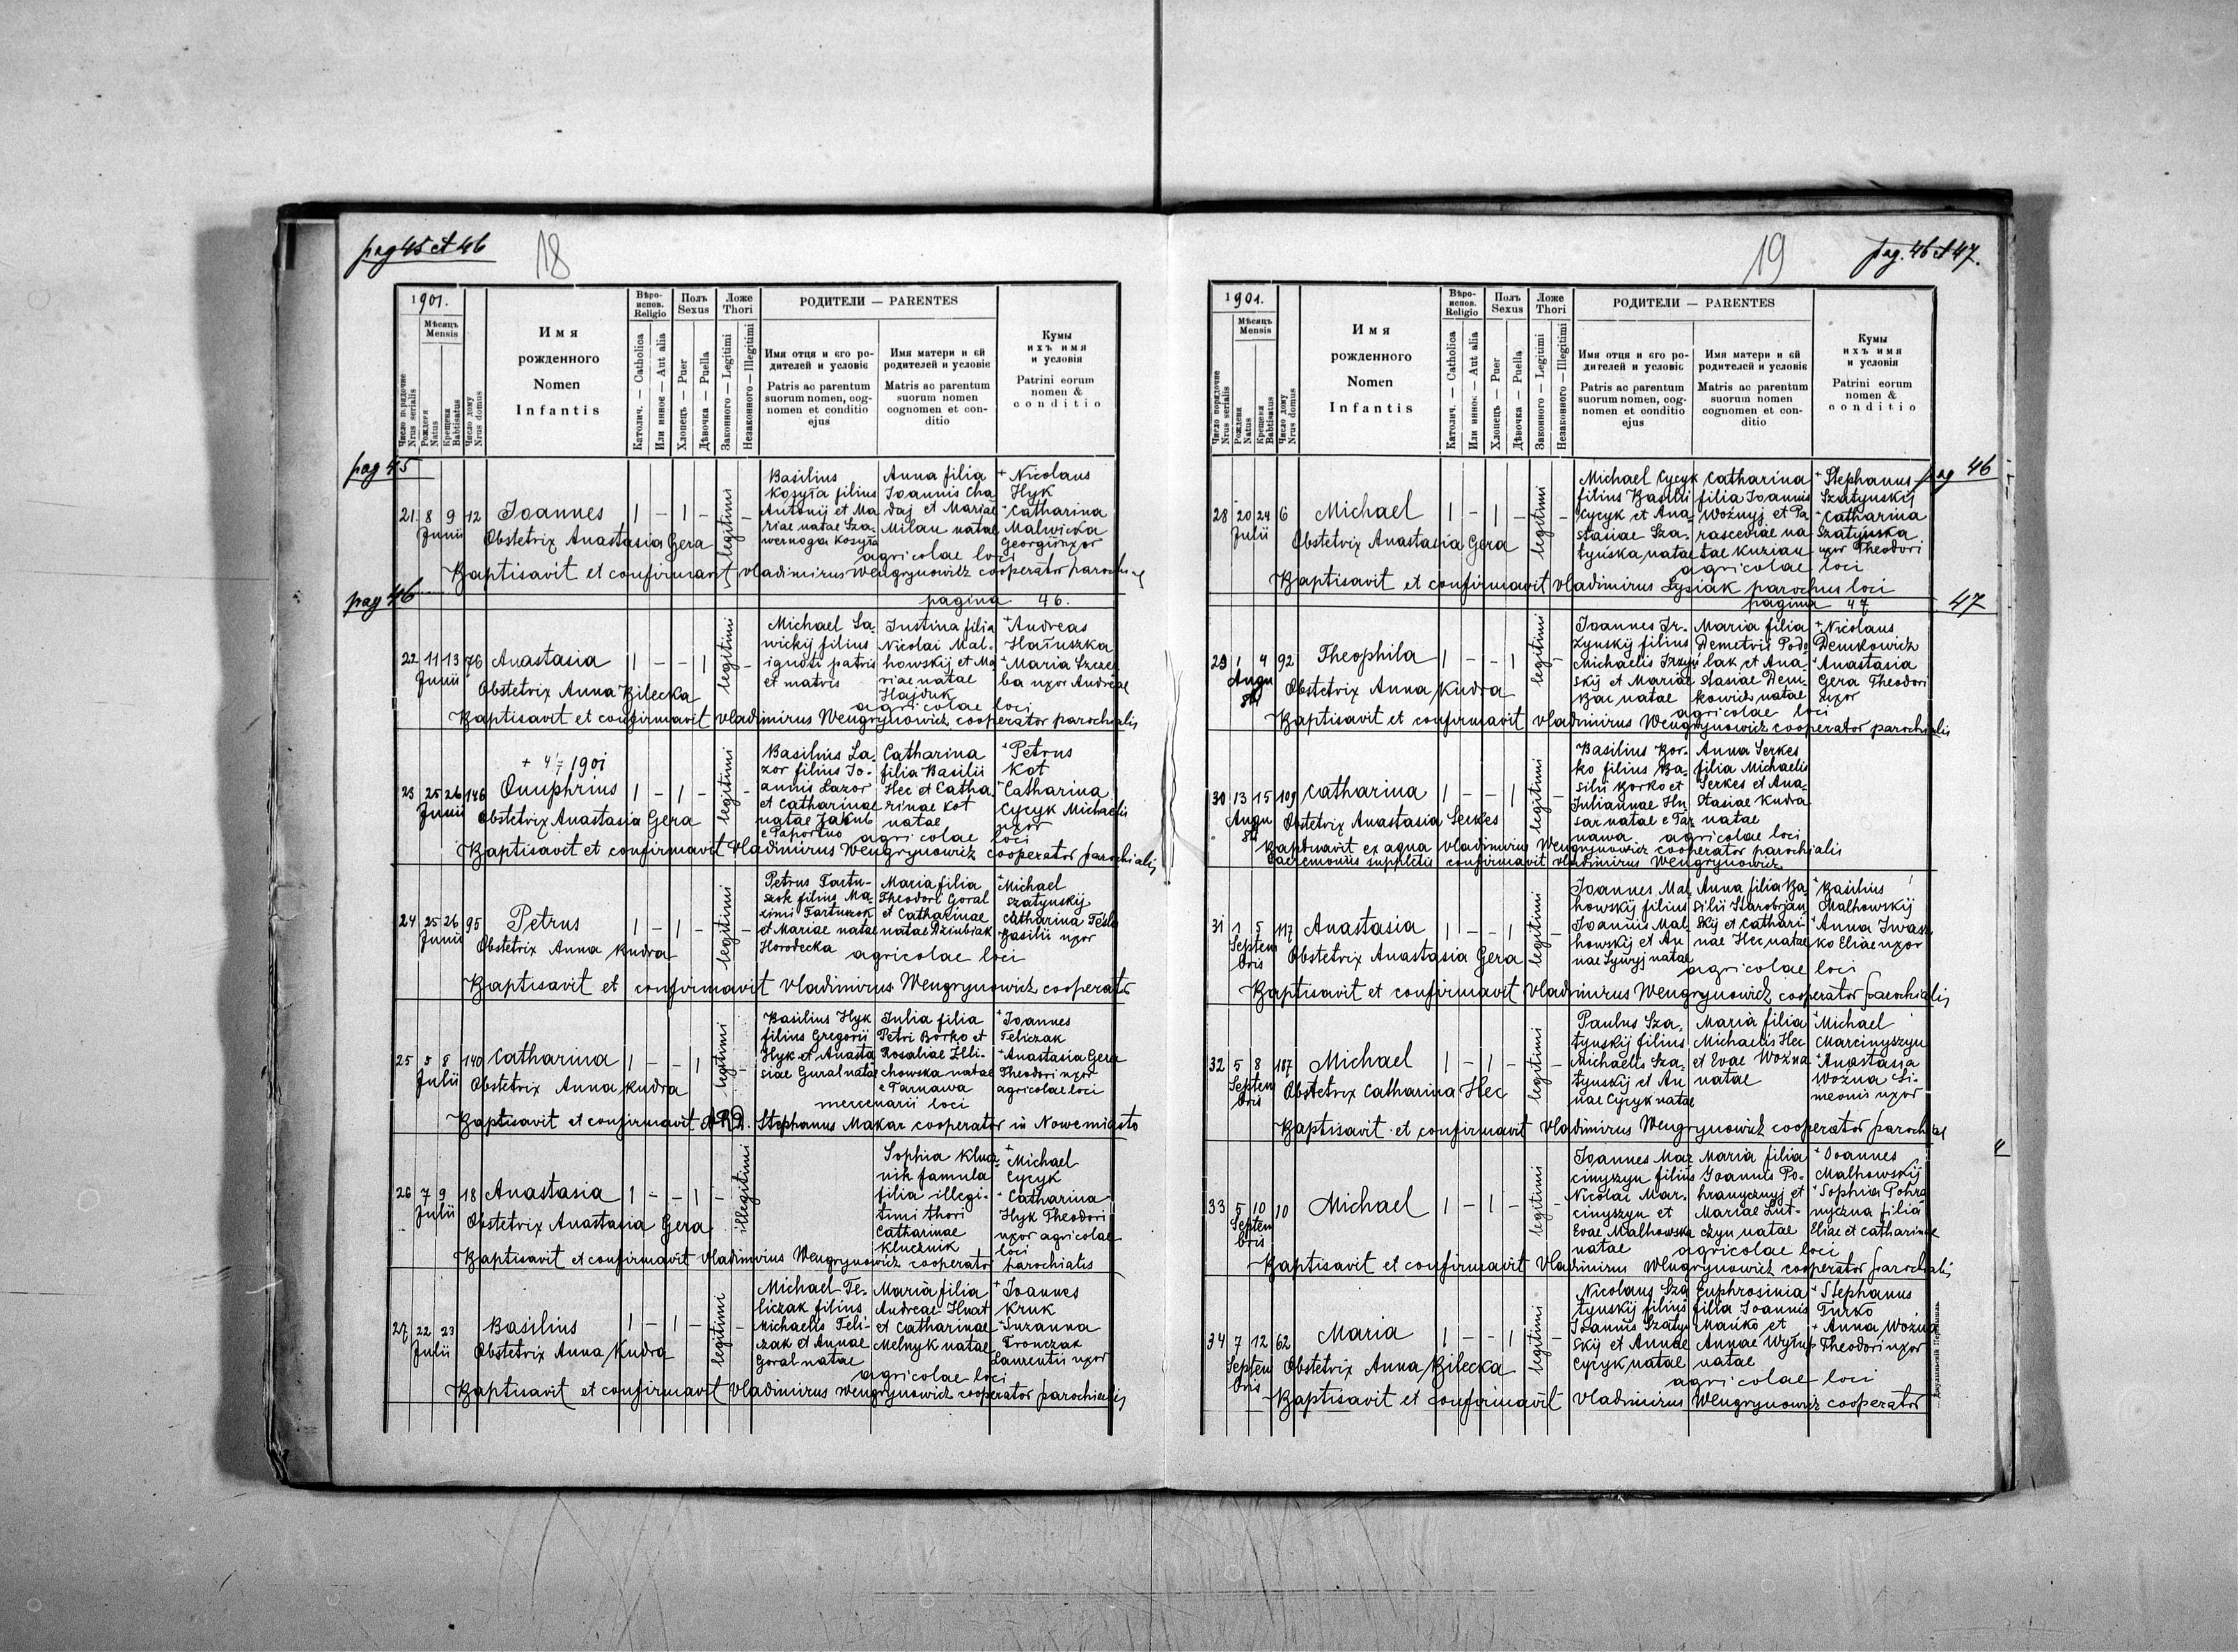 pag 45 et 46
18
1901.
Мѣсяць
Mensis
Число порядочне
Nrus serialis
Рожденя
Natus
Крещеня
Babtisatus
Число дому
Nrus domus
Имя
рожденного
Nomen
Infantis
Вѣро-
испов.
Religio
Католич. — Catholica
Или инноє — Aut alia
Полъ
Sexus
Хлопець — Puer
Дѣвочка — Puella
Ложе
Thori
Законного — Legitimi
Незаконного — Illegitimi
РОДИТЕЛИ — PARENTES
Имя отця и єго ро-
дителей и условіє
Patris ac parentum
suorum nomen, cog-
nomen et conditio
ejus
Имя матери и єй
родителей и условіє
Matris ac parentum
suorum nomen
cognomen et con-
ditio
Кумы
ихъ имя
и условія
Patrini eorum
nomen &
conditio
pag 45
21 8 9 12 Joannes 1 — 1 — legitimi —
Junii
Obstetrix Anastasia Gera
Basilius
Kosyła filius
Antonij et Ma
riae natae Sza-
wernoga Kosyła
Anna filia
Joannis Cha
daj et Mariae
Milan natae
+ Nicolaus
Hyk
+ Catharina
Malwicka
Georgii uxor
agricolae loci
Baptisavit et confirmavit Vladimirus Wengrynowicz cooperator parochial
pag 46
pagina 46.
22 11 13 76 Anastasia 1 — — 1 legitimi —
Junii
Obstetrix Anna Bilecka
Michael Sa-
wickij filius
ignoti patris
et matris
Justina filia
Nicolai Mal-
howskij et Ma
riae natae
Hajduk
+ Andreas
Hałuszka
+ Maria Szczer
ba uxor Andreae
agricolae loci
Baptisavit et confirmavit Vladimirus Wengrynowicz cooperator parochialis
+ 4/7 1901
23 25 26 146 Onuphrius 1 — 1 — legitimi —
Junii
Obstetrix Anastasia Gera
Basilius La-
zor filius Jo-
annis Lazor
et Catharinae
natae Jakub
e Paportno
Catharina
filia Basilii
Hec et Catha
rinae Kot
natae
+ Petrus
Kot
+ Catharina
Cycyk Michaelis
uxor
agricolae loci
Baptisavit et confirmavit Vladimirus Wengrynowicz cooperator parochialis
24 25 26 95 Petrus 1 — 1 — legitimi —
Junii
Obstetrix Anna Kudra
Petrus Tartu-
szok filius Ma-
ximi Tartuszok
et Mariae natae
Horodecka
Maria filia
Theodori Goral
et Catharinae
natae Dziubiak
+ Michael
Szatynskij
Catharina Tesla
Basilii uxor
agricolae loci
Baptisavit et confirmavit Vladimirus Wengrynowicz cooperator
25 5 8 140 Catharina 1 — — 1 legitimi —
Julii
Obstetrix Anna Kudra
Basilius Hyk
filius Gregorii
Hyk et Anasta
siae Gural natae
Julia filia
Petri Borko et
Rosaliae Hli-
chowska natae
e Tarnawa
+ Joannes
Feliczak
+ Anastasia Gera
Theodori uxor
agricolae loci
mercenarii loci
Baptisavit et confirmavit ARD. Stephanus Makar cooperator in Nowemiasto
26 7 9 18 Anastasia 1 — — 1 — illegitimi
Julii
Obstetrix Anastasia Gera
Sophia Klucz-
nik famula
filia illegi-
timi thori
Catharinae
Klucznik
+ Michael
Cycyk
+ Catharina
Hyk Theodori
uxor agricolae
loci
Baptisavit et confirmavit Vladimirus Wengrynowicz cooperator parochialis
27 22 23 Basilius 1 — 1 — legitimi —
Julii
Obstetrix Anna Kudra
Michael Fe-
liczak filius
Michaelis Feli-
czak et Annae
Goral natae
Maria filia
Andreae Hnat
et Catharinae
Melnyk natae
+ Joannes
Kruk
+ Suzanna
Tronczak
Laurentii uxor
agricolae loci
Baptisavit et confirmavit Vladimirus Wengrynowicz cooperator parochialis
19
pag. 46 et 47.
1901.
Мѣсяць
Mensis
Число порядочне
Nrus serialis
Рожденя
Natus
Крещеня
Babtisatus
Число дому
Nrus domus
Имя
рожденного
Nomen
Infantis
Вѣро-
испов.
Religio
Католич. — Catholica
Или инноє — Aut alia
Полъ
Sexus
Хлопець — Puer
Дѣвочка — Puella
Ложе
Thori
Законного — Legitimi
Незаконного — Illegitimi
РОДИТЕЛИ — PARENTES
Имя отця и єго ро-
дителей и условіє
Patris ac parentum
suorum nomen, cog-
nomen et conditio
ejus
Имя матери и єй
родителей и условіє
Matris ac parentum
suorum nomen
cognomen et con-
ditio
Кумы
ихъ имя
и условія
Patrini eorum
nomen &
conditio
pag 46
28 20 24 6 Michael 1 — 1 — legitimi —
Julii
Obstetrix Anastasia Gera
Michael Cycyk
filius Basilii
Cycyk et Ana-
stasiae Sza-
tyńska natae
Catharina
filia Joannis
Woźnyj et Pa
rascediae na
tae Kuzian
+ Stephanus
Szatynskij
+ Catharina
Szatyńska
uxor Theodori
agricolae loci
Baptisavit et confirmavit Vladimirus Lysiak parochus loci
pagina 47
47
29 1 4 92 Theophila 1 — — 1 legitimi —
Augu
sti
Obstetrix Anna Kudra
Joannes Jr-
zynskij filius
Michaelis Irzyń
skij et Mariae
Bar natae
Maria filia
Demetrii Podo
lak et Ana-
stasiae Dem-
kowicz natae
+ Nicolaus
Demkowicz
+ Anastasia
Gera Theodori
uxor
agricolae loci
Baptisavit et confirmavit Vladimirus Wengrynowicz cooperator parochialis
30 13 15 109 Catharina 1 — — 1 legitimi —
Augu
sti
Obstetrix Anastasia Serkes
Basilius Bor-
ko filius Ba-
silii Borko et
Juliannae Hu-
sar natae e Tar
nawa
Anna Serkes
filia Michaelis
Serkes et Ana-
stasiae Kudra
natae
agricolae loci
Baptisavit ex aqua Vladimirus Wengrynowicz cooperator parochialis
Caeremoniis suppletis confirmavit Vladimirus Wengrynowicz
31 1 5 117 Anastasia 1 — — 1 legitimi —
Septem
bris
Obstetrix Anastasia Gera
Joannes Mal
howskij filius
Joannis Mal-
howskij et An
nae Synyj natae
Anna filia Ba
silii Starobrjan
skij et Cathari-
nae Hec natae
+ Basilius
Malhowskij
+ Anna Iwasz
ko Eliae uxor
agricolae loci
Baptisavit et confirmavit Vladimirus Wengrynowicz cooperator parochialis
32 5 8 187 Michael 1 — 1 — legitimi —
Septem
bris
Obstetrix Catharina Hec
Paulus Sza-
tynskij filius
Michaelis Sza-
tynskij et An
nae Cycyk natae
Maria filia
Michaelis Hec
et Evae Woźna
natae
+ Michael
Marcinyszyn
+ Anastasia
Woźna Si-
meonis uxor
Baptisavit et confirmavit Vladimirus Wengrynowicz cooperator parochial
33 5 10 10 Michael 1 — 1 — legitimi —
Septem
bris
Joannes Mar
cinyszyn filius
Nicolai Mar-
cinyszyn et
Evae Malhowska
natae
Maria filia
Joannis Po-
hranycznyj et
Mariae Lut-
czyn natae
+ Joannes
Malhowskij
+ Sophia Pohra
nyczna filia
Eliae et Catharinae
agricolae loci
Baptisavit et confirmavit Vladimirus Wengrynowicz cooperator parochialis
34 7 12 62 Maria 1 — — 1 legitimi —
Septem
bris
Obstetrix Anna Bilecka
Nicolaus Sza
tynskij filius
Joannis Szatyn
skij et Annae
Cycyk natae
Euphrosinia
filia Joannis
Mańko et
Annae Wytup
natae
+ Stephanus
Turko
+ Anna Woźna
Theodori uxor
agricolae loci
Baptisavit et confirmavit Vladimirus Wengrynowicz cooperator